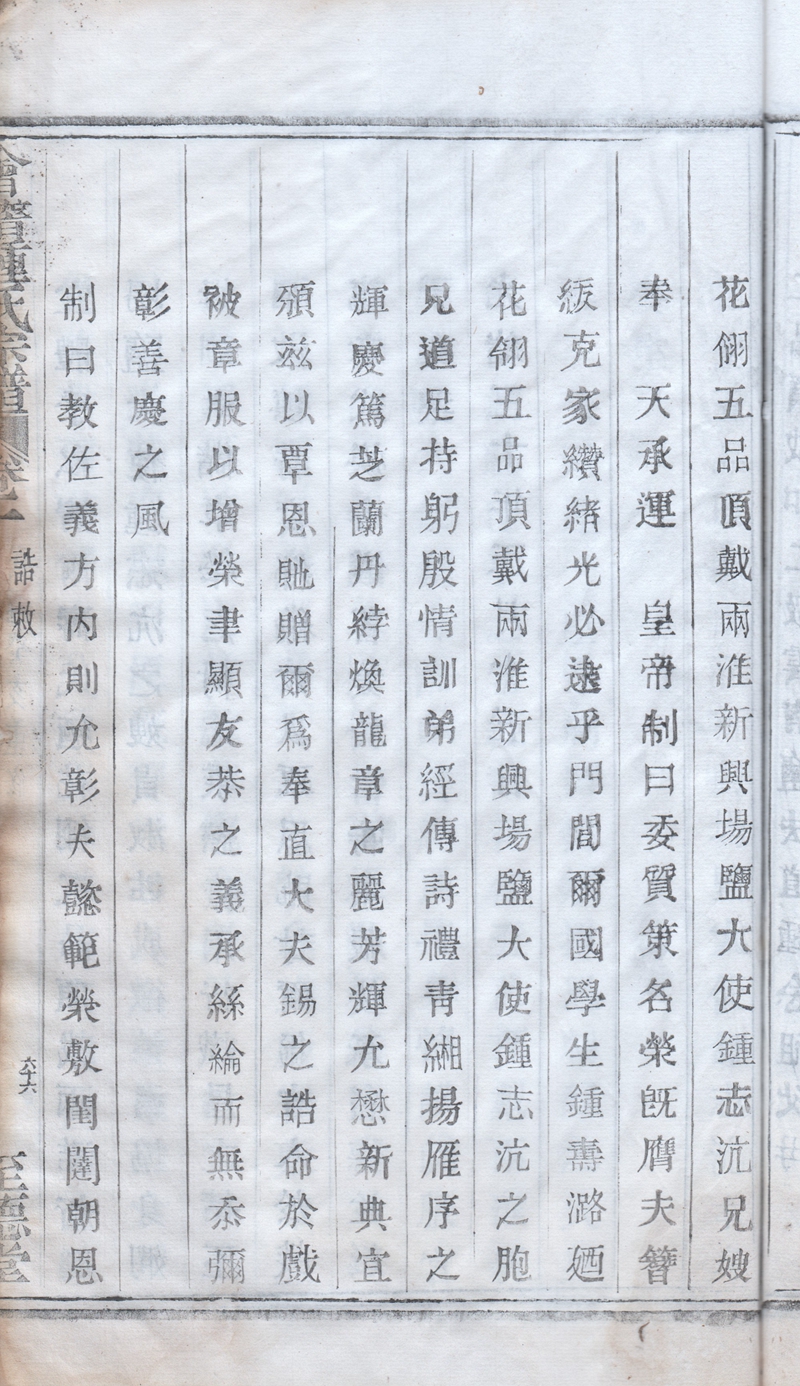 花翎五品頂戴兩淮新興場鹽大使鍾志沆兄嫂
奉　天承運　皇帝制曰委質策名榮既膺夫簪
紱克家纘緒光必逮乎門閭爾國學生鍾壽潞廼
花翎五品頂戴兩淮新興場鹽大使鍾志沆之胞
兄道足持躬殷情訓弟經傳詩禮青緗揚雁序之
輝慶篤芝蘭丹綍煥龍章之麗芳輝允懋新典宜
頒茲以覃恩貤贈爾爲奉直大夫錫之誥命於戲
被章服以增榮聿顯友恭之義承絲綸而無忝彌
彰善慶之風
制曰教佐義方內則允彰夫懿範榮敷閨闥朝恩
會稽鍾氏宗譜　卷一　誥敕　六十六　至德堂